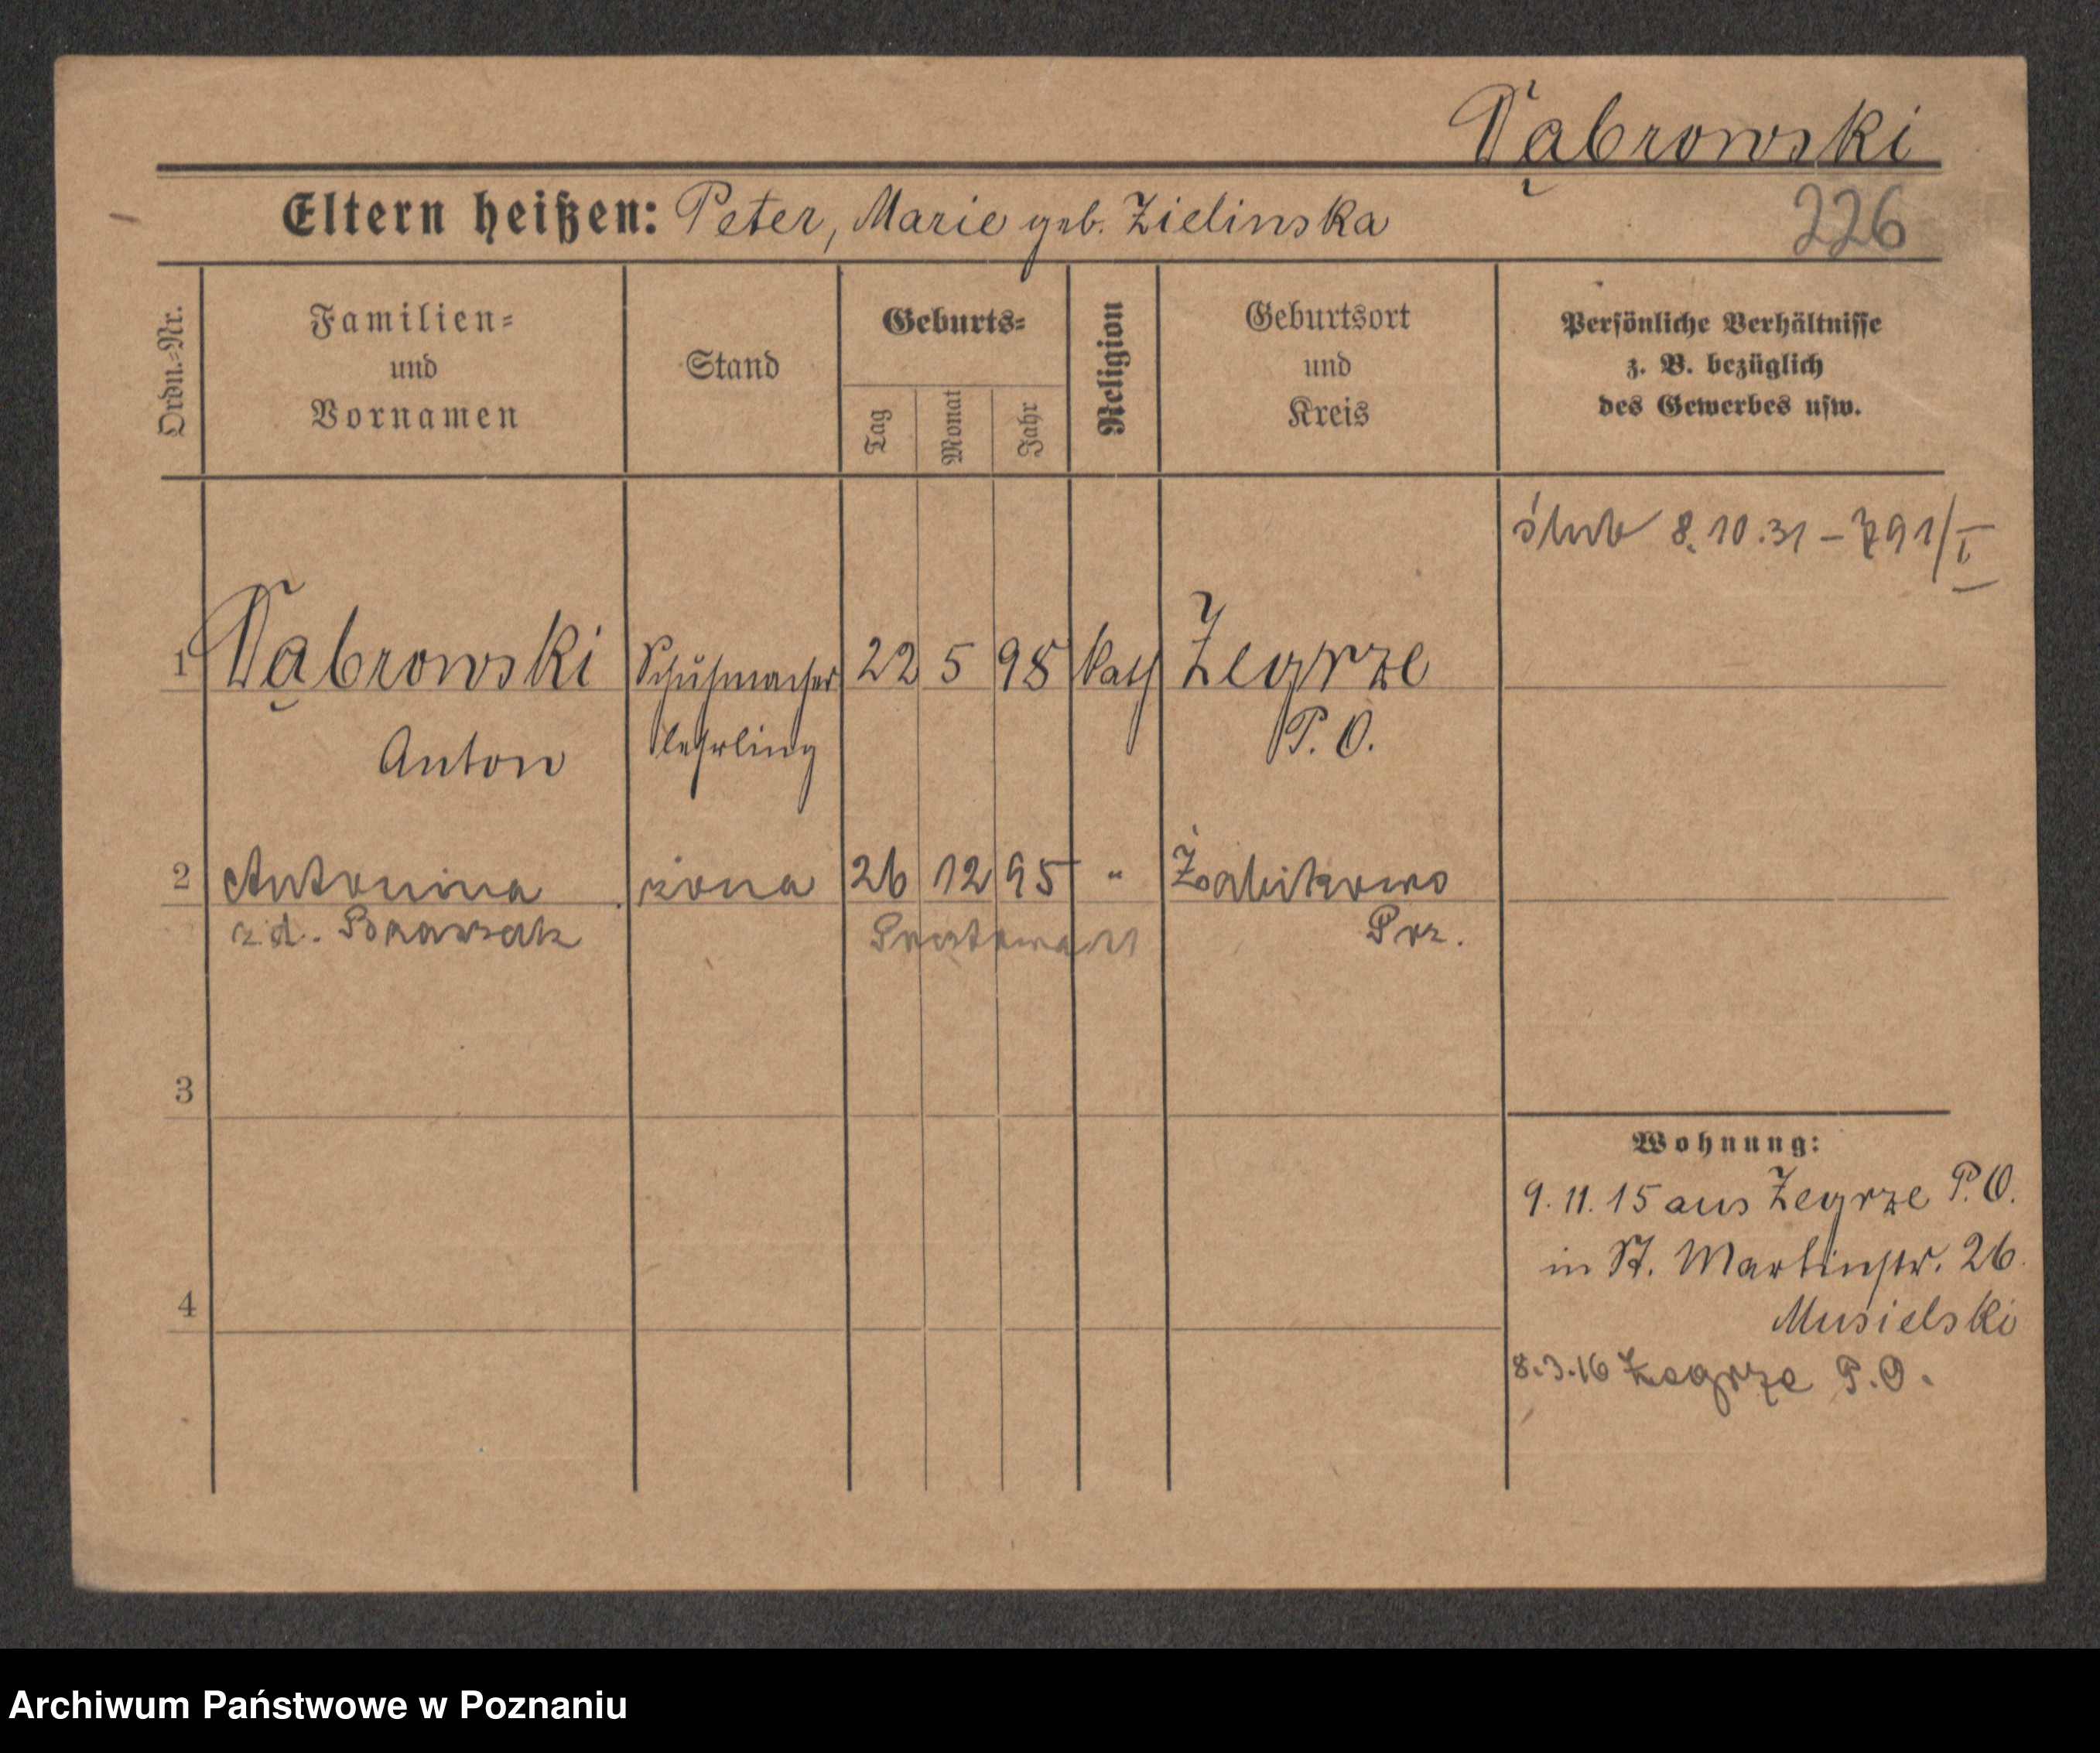 Dąbrowski
Eltern heißen: Peter, Marie geb. Zielinska
226
Ordn.-Nr.
Familien-
und
Vornamen
Stand
Geburts-
Tag
Monat
Jahr
Religion
Geburtsort
und
Kreis
Persönliche Verhältnisse
z. B. bezüglich
des Gewerbes usw.
ślub 8.10.31 – 791/I
1 Dąbrowski Schuhmacher 22 5 98 kath Żegrze
Anton lehrling P. O.
2 Antonina żona 26 12 95 " Żabikowo
z d. Poz.
3
4
Wohnung:
9. 11. 15 aus Żegrze P. O.
in St. Martinstr. 26.
Musielski
8.3.16 Żegrze P. O.
Archiwum Państwowe w Poznaniu